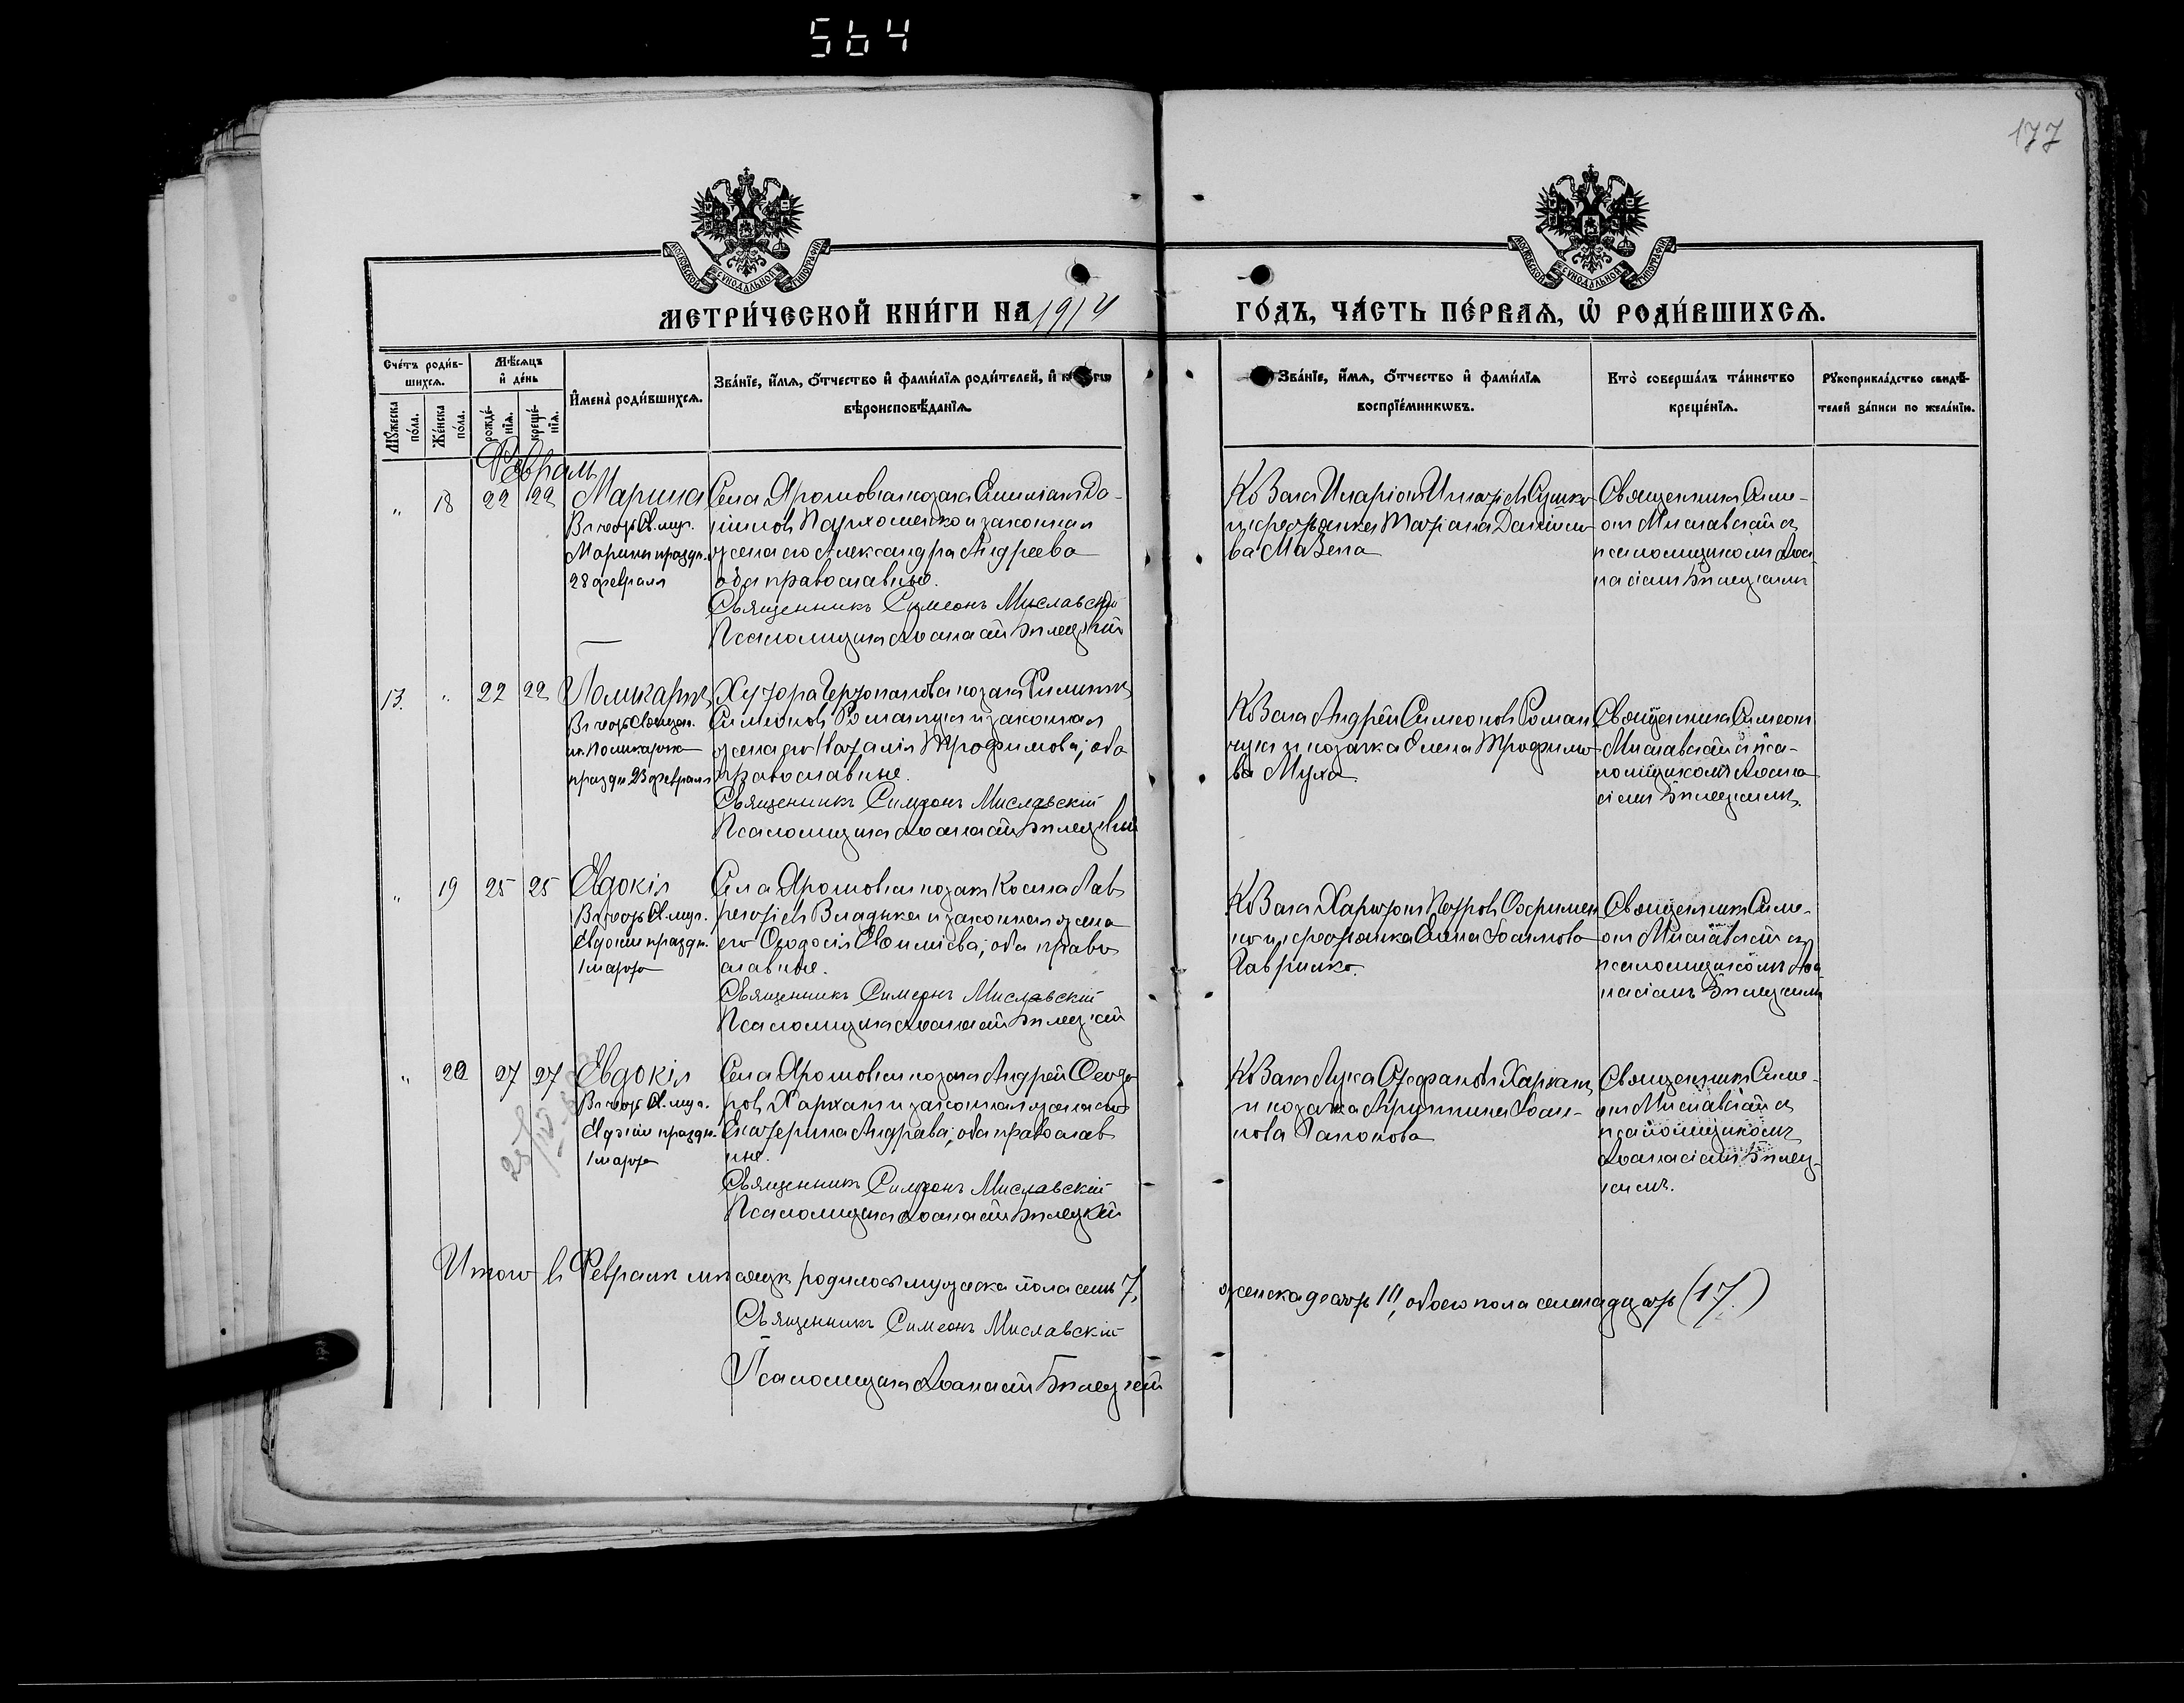 564
177
МОСКОВСКОЙ СѴНОДАЛЬНОЙ ТИПОГРАФІИ
МОСКОВСКОЙ СѴНОДАЛЬНОЙ ТИПОГРАФІИ
МЕТРИ́ЧЕСКОЙ КНИ́ГИ НА 1914
ГО́ДЪ, ЧА́СТЬ ПЕ́РВАѦ, Ѡ҆ РОДИ́ВШИХСѦ.
Сче́тъ роди́в-
шихсѧ.
Мѣ́сѧцъ
и҆ де́нь
Мꙋ́жеска
по́ла.
Же́нска
по́ла.
рожде́-
нїѧ.
креще́-
нїѧ.
И҆мена̀ роди́вшихсѧ.
Зва́нїе, и҆́мѧ, ѻ҆́тчество и҆ фами́лїѧ роди́телей, и҆
вѣроисповѣ́данїѧ.
Зва́нїе, и҆́мѧ, ѻ҆́тчество и҆ фами́лїѧ
воспрїе́мникѡвъ.
Кто̀ соверша́лъ та́инство
креще́нїѧ.
Рꙋкоприкла́дство свидѣ́-
телей за́писи по жела́нїю.
Февраль
„ 18 22 22 Марина
Въ честь Св. муч.
Марины праздн.
28 февраля
Села Ярошовки козакъ
Пархоменко и законная
жена его Александра Андреева
оба православные.
Священникъ Симеонъ Миславскій
Псаломщикъ Аѳанасій Бѣлецкій
Козакъ Иларіонъ Сушко
и крестьянка Татіана Даніило-
ва Мазепа
Священникъ Симе-
онъ Миславскій съ
псаломщикомъ Аѳа-
насіемъ Бѣлецкимъ
13. „ 22 22 Поликарпъ
Въ честь Священ.
м. Поликарпа
праздн. 23 февраля
Хутора козакъ Филиппъ
Симеоновъ Романчукъ и законная
жена его Наталія Трофимова, оба
православные.
Священникъ Симеонъ Миславскій
Псаломщикъ Аѳанасій Бѣлецкій
Козакъ Андрей Симеоновъ Роман-
чукъ и козачка Елена Трофимо-
ва Муха
Священникъ Симеонъ
Миславскій съ пса-
ломщикомъ Аѳана-
сіемъ Бѣлецкимъ.
„ 19 25 25 Евдокія
Въ честь Св. муч.
Евдокіи праздн.
1 марта
Села Ярошовки козакъ Косма Лав-
рентіевъ Владыка и законная жена
его Ѳеодосія Евѳиміева, оба право-
славные.
Священникъ Симеонъ Миславскій
Псаломщикъ Аѳанасій Бѣлецкій
Козакъ Харитонъ Петровъ
и крестьянка Анна Іоаннова
Гавришко.
Священникъ Симе-
онъ Миславскій съ
псаломщикомъ Аѳа-
насіемъ Бѣлецкимъ
„ 20 27 27 Евдокія
Въ честь Св. муч.
Евдокіи праздн.
1 марта
Села Ярошовки козакъ Андрей Ѳеодо-
ровъ Харханъ и законная жена его
Екатерина Андреева, оба православ-
ные.
Священникъ Симеонъ Миславскій
Псаломщикъ Аѳанасій Бѣлецкій
Козакъ Лука Стефановъ Харханъ
и козачка Іоан-
нова
Священникъ Симе-
онъ Миславскій съ
псаломщикомъ
Аѳанасіемъ Бѣлец-
кимъ.
Итого въ Февралѣ мѣсяцѣ родилось мужеска пола семь 7,
женска десять 10, обоего пола семнадцать (17.)
Священникъ Симеонъ Миславскій
Псаломщикъ Аѳанасій Бѣлецкій